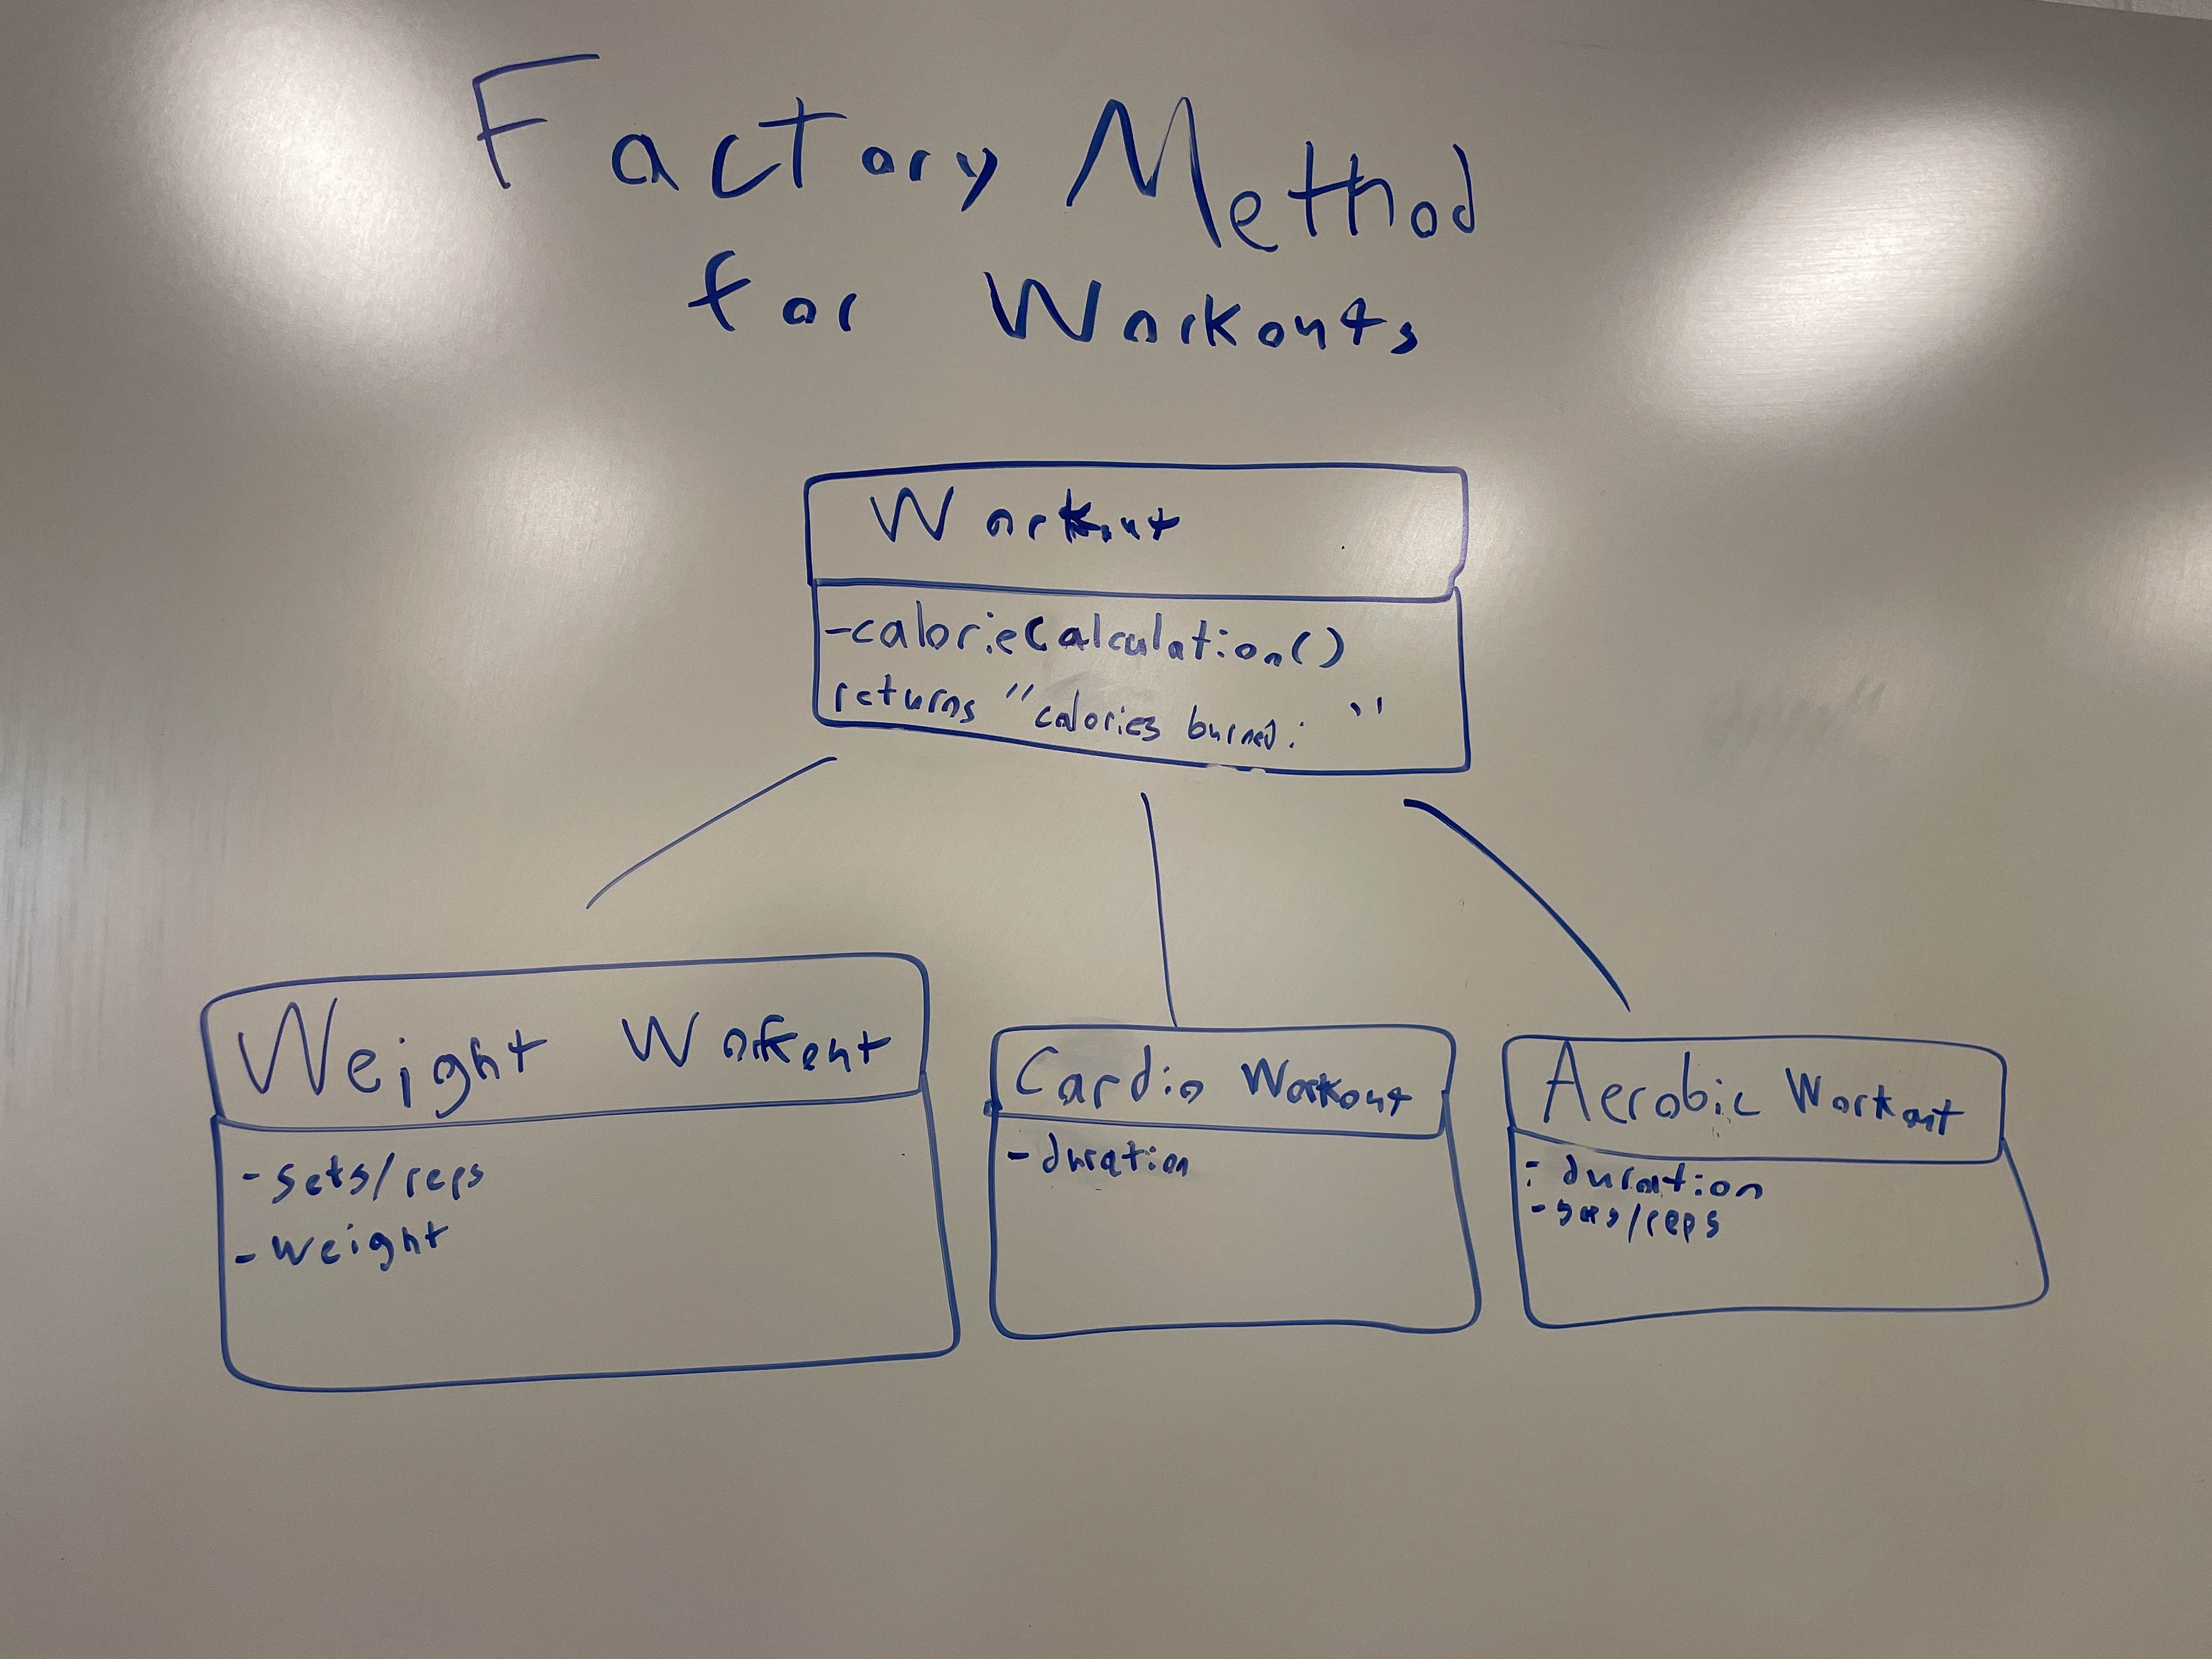 Factory Method
for Workouts
Workout
-calorieCalculation()
returns "calories burned: "
Weight Workout
-sets/reps
-weight
Cardio Workout
-duration
Aerobic Workout
- duration
-sets/reps